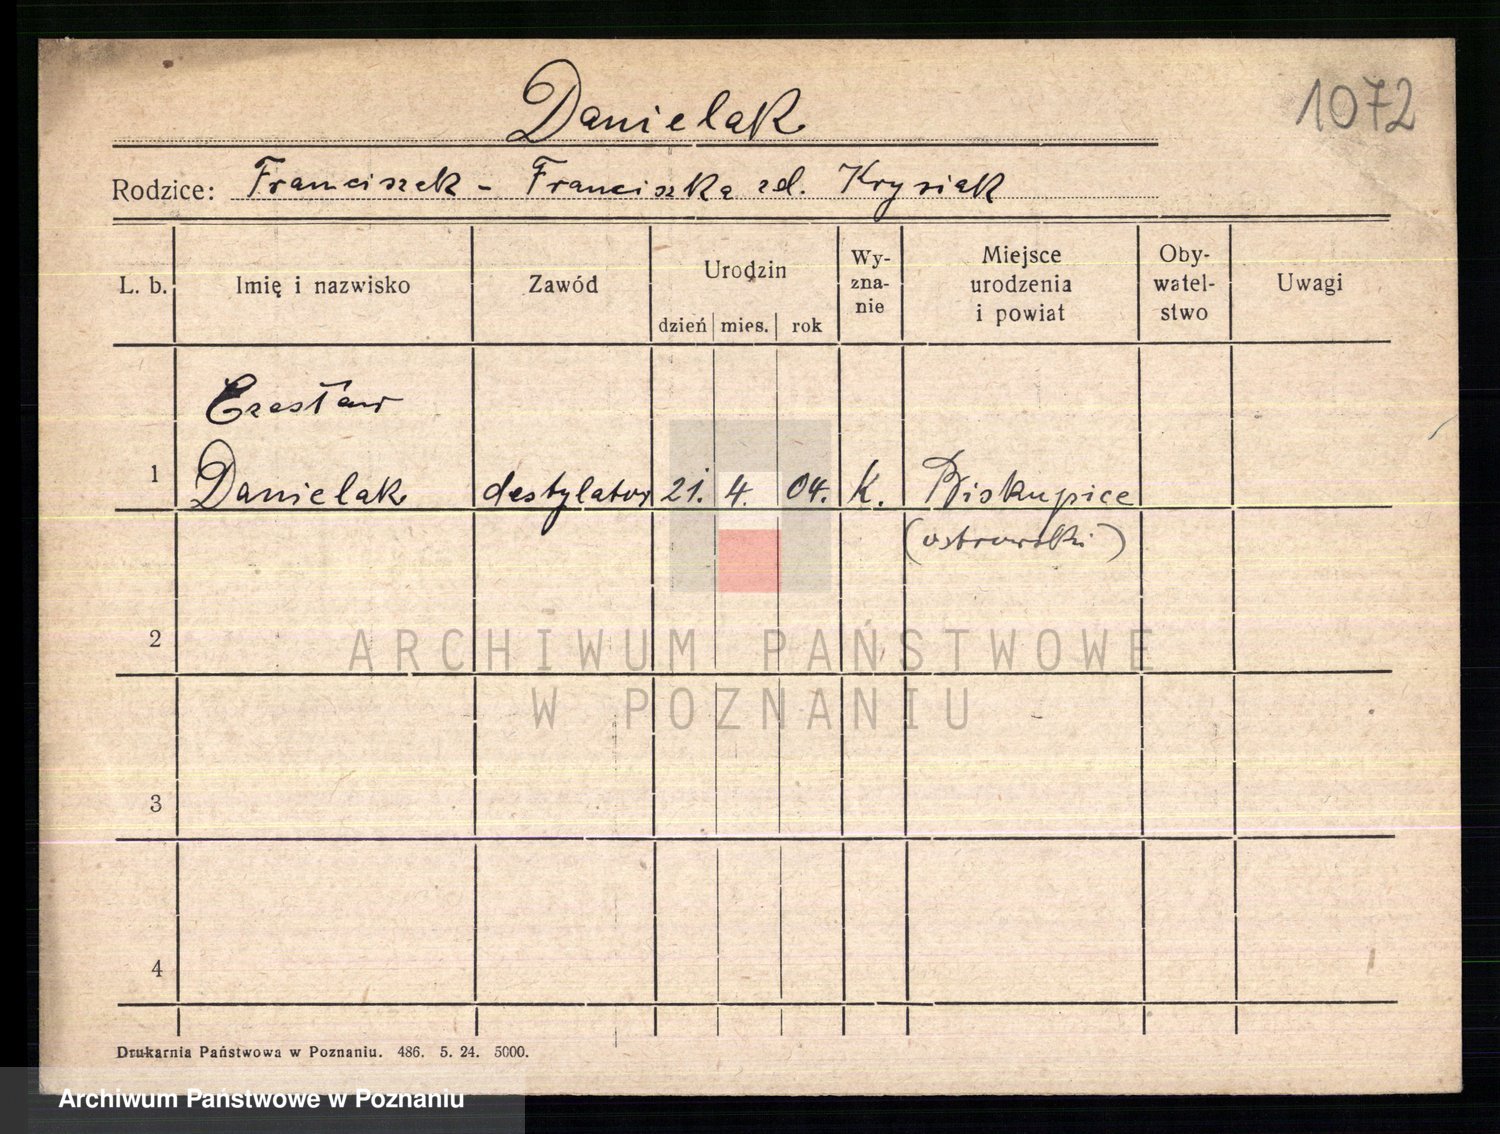 Danielak
1072
Rodzice: Franciszek - Franciszka zd. Krysiak
L. b.
Imię i nazwisko
Zawód
Urodzin
dzień mies. rok
Wy-
zna-
nie
Miejsce
urodzenia
i powiat
Oby-
watel-
stwo
Uwagi
Czesław
1 Danielak destylator 21. 4. 04. K. Biskupice
(ostrowski)
2
ARCHIWUM PAŃSTWOWE
W POZNANIU
3
4
Drukarnia Państwowa w Poznaniu. 486. 5. 24. 5000.
Archiwum Państwowe w Poznaniu